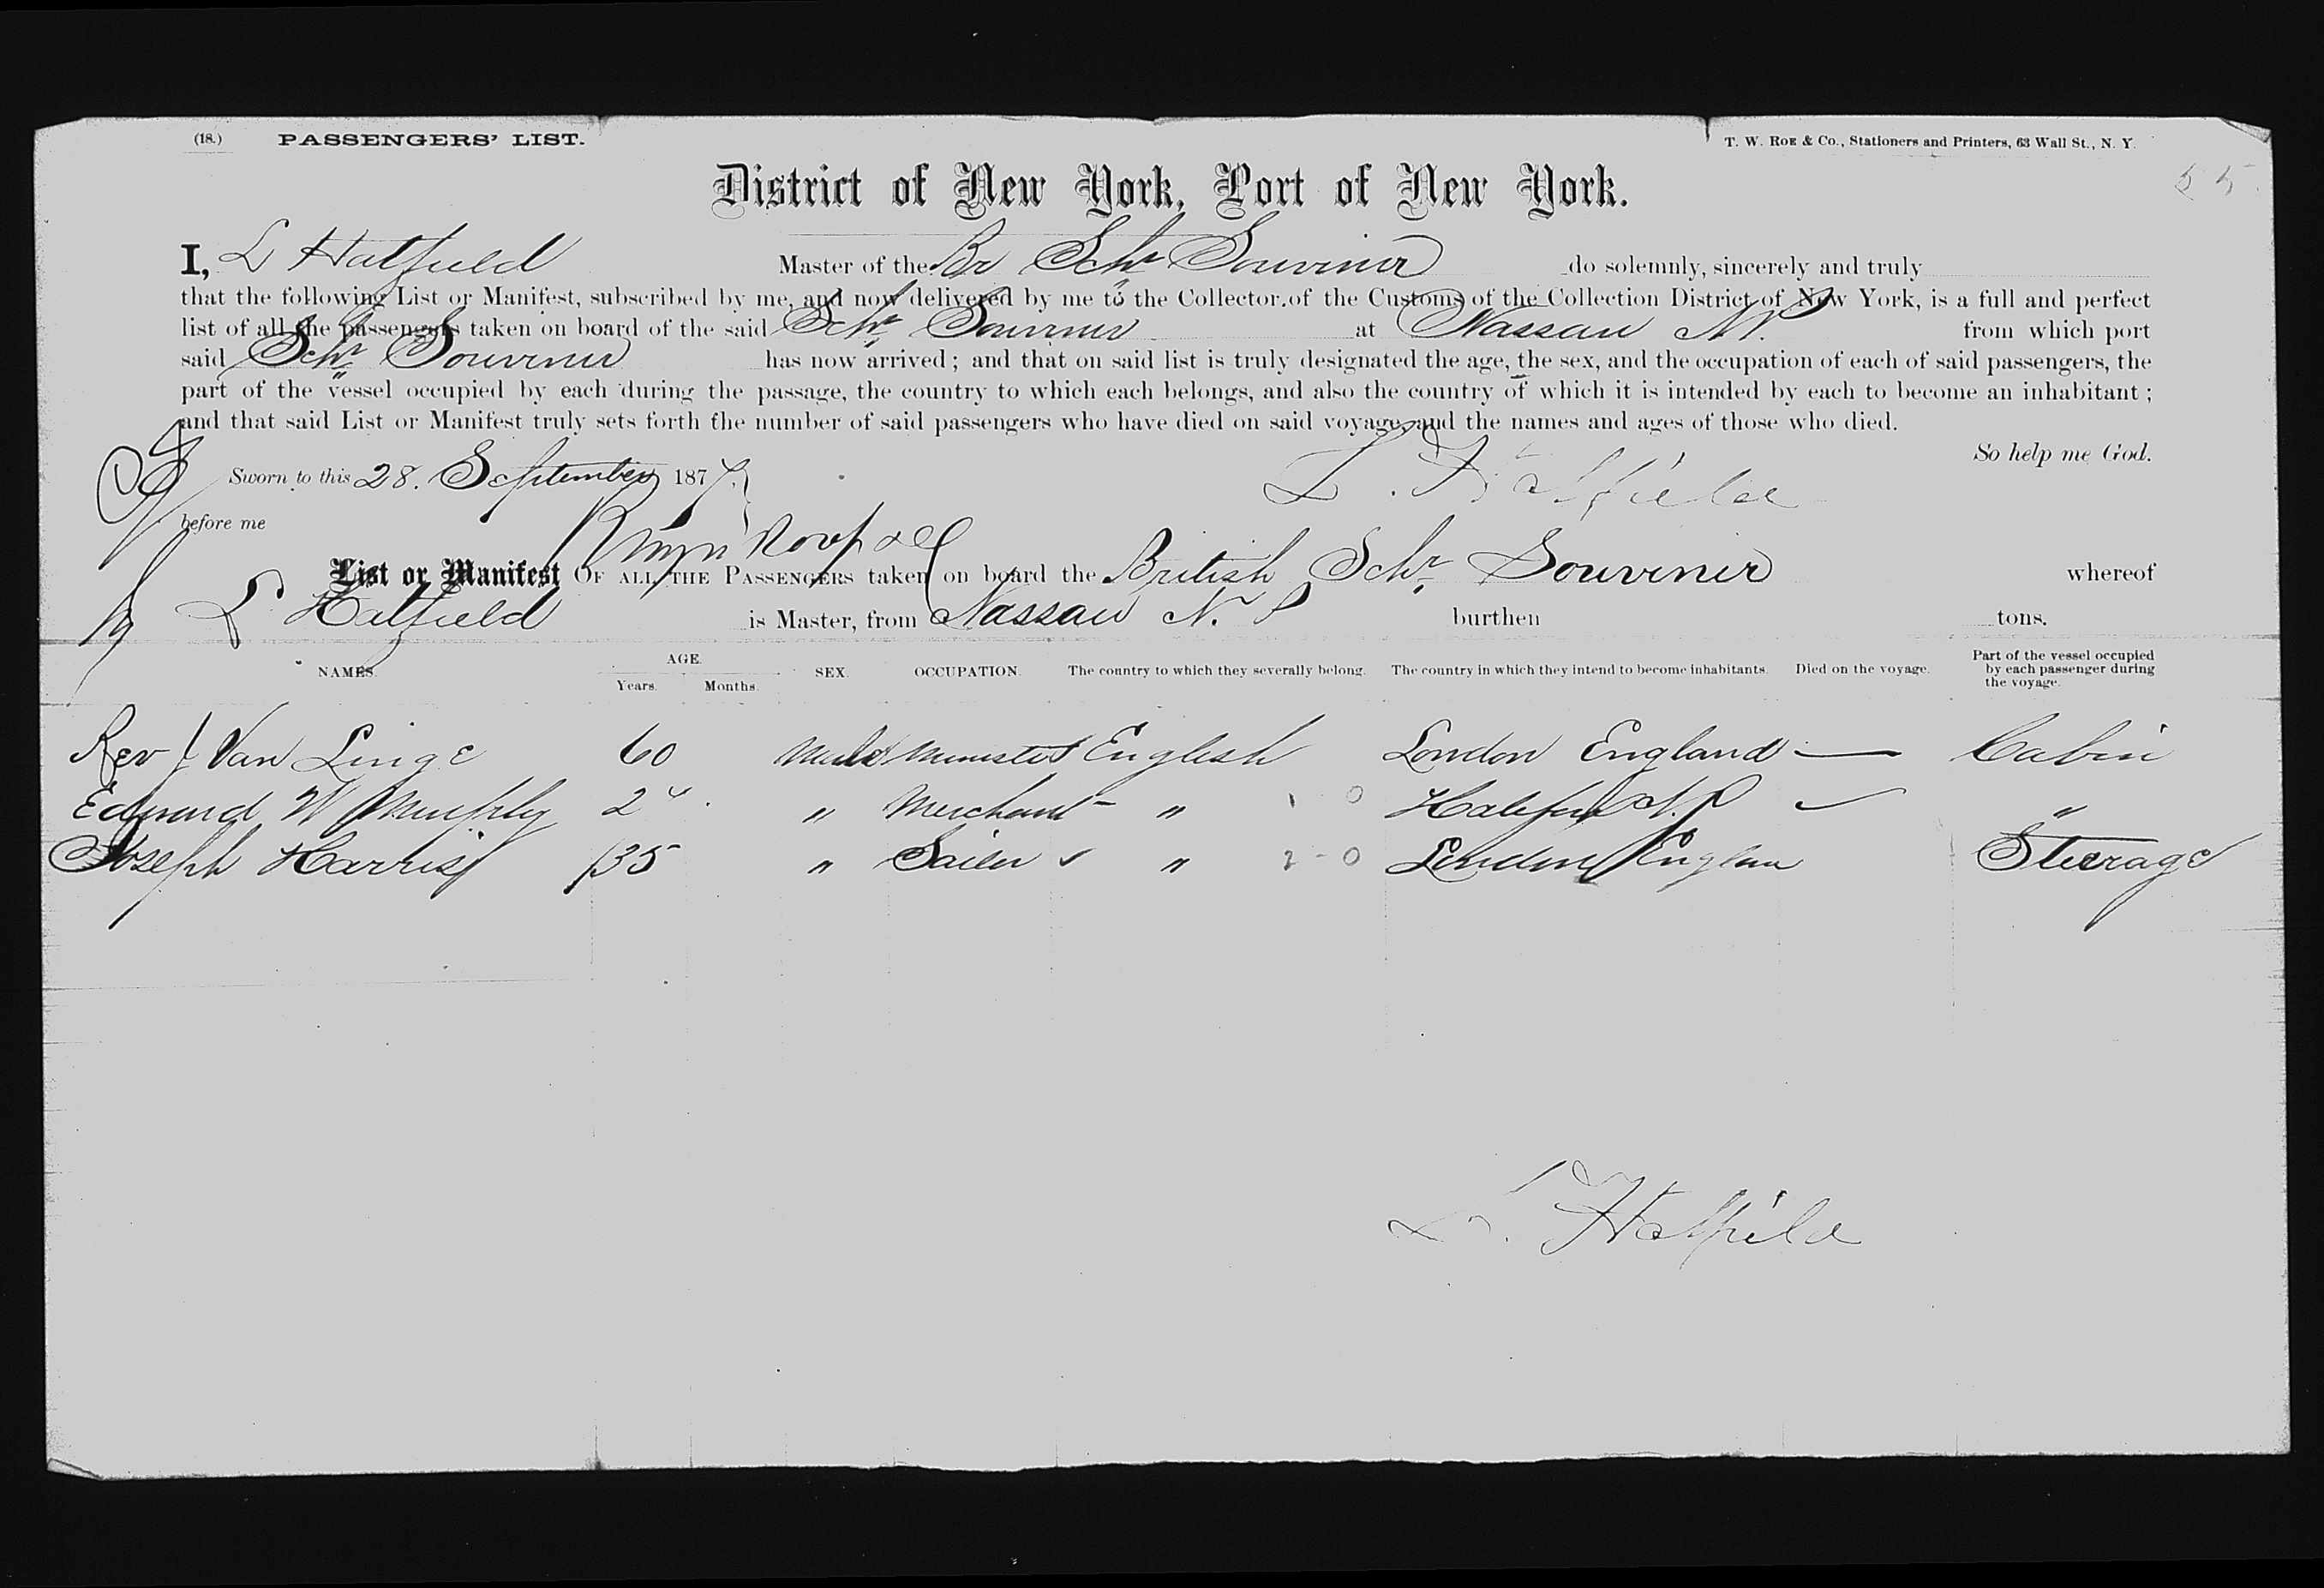 (18.) PASSENGERS' LIST. T. W. ROE & Co., Stationers and Printers, 63 Wall St., N. Y.
55
District of New York, Port of New York.
I, L Hatfield Master of the Br Schr Souvenir do solemnly, sincerely and truly
that the following List or Manifest, subscribed by me, and now delivered by me to the Collector of the Customs of the Collection District of New York, is a full and perfect
list of all the passengers taken on board of the said Schr Souvenir at Nassau N.P. from which port
said Schr Souvenir has now arrived; and that on said list is truly designated the age, the sex, and the occupation of each of said passengers, the
part of the vessel occupied by each during the passage, the country to which each belongs, and also the country of which it is intended by each to become an inhabitant;
and that said List or Manifest truly sets forth the number of said passengers who have died on said voyage, and the names and ages of those who died.
So help me God.
Sworn to this 28. September 187
L. Hatfield
before me
List or Manifest OF ALL THE PASSENGERS taken on board the British Schr Souvenir whereof
L Hatfield is Master, from Nassau N. P burthen tons.
NAMES. AGE. Years. Months. SEX. OCCUPATION. The country to which they severally belong. The country in which they intend to become inhabitants. Died on the voyage. Part of the vessel occupied by each passenger during the voyage.
Rev J Van Linge 60 Male Minister English London England — Cabin
Edward W Murphy 2 " Merchant " Halifax "
Joseph Harris 35 " Sailor " London Englan Steerage
L. Hatfield